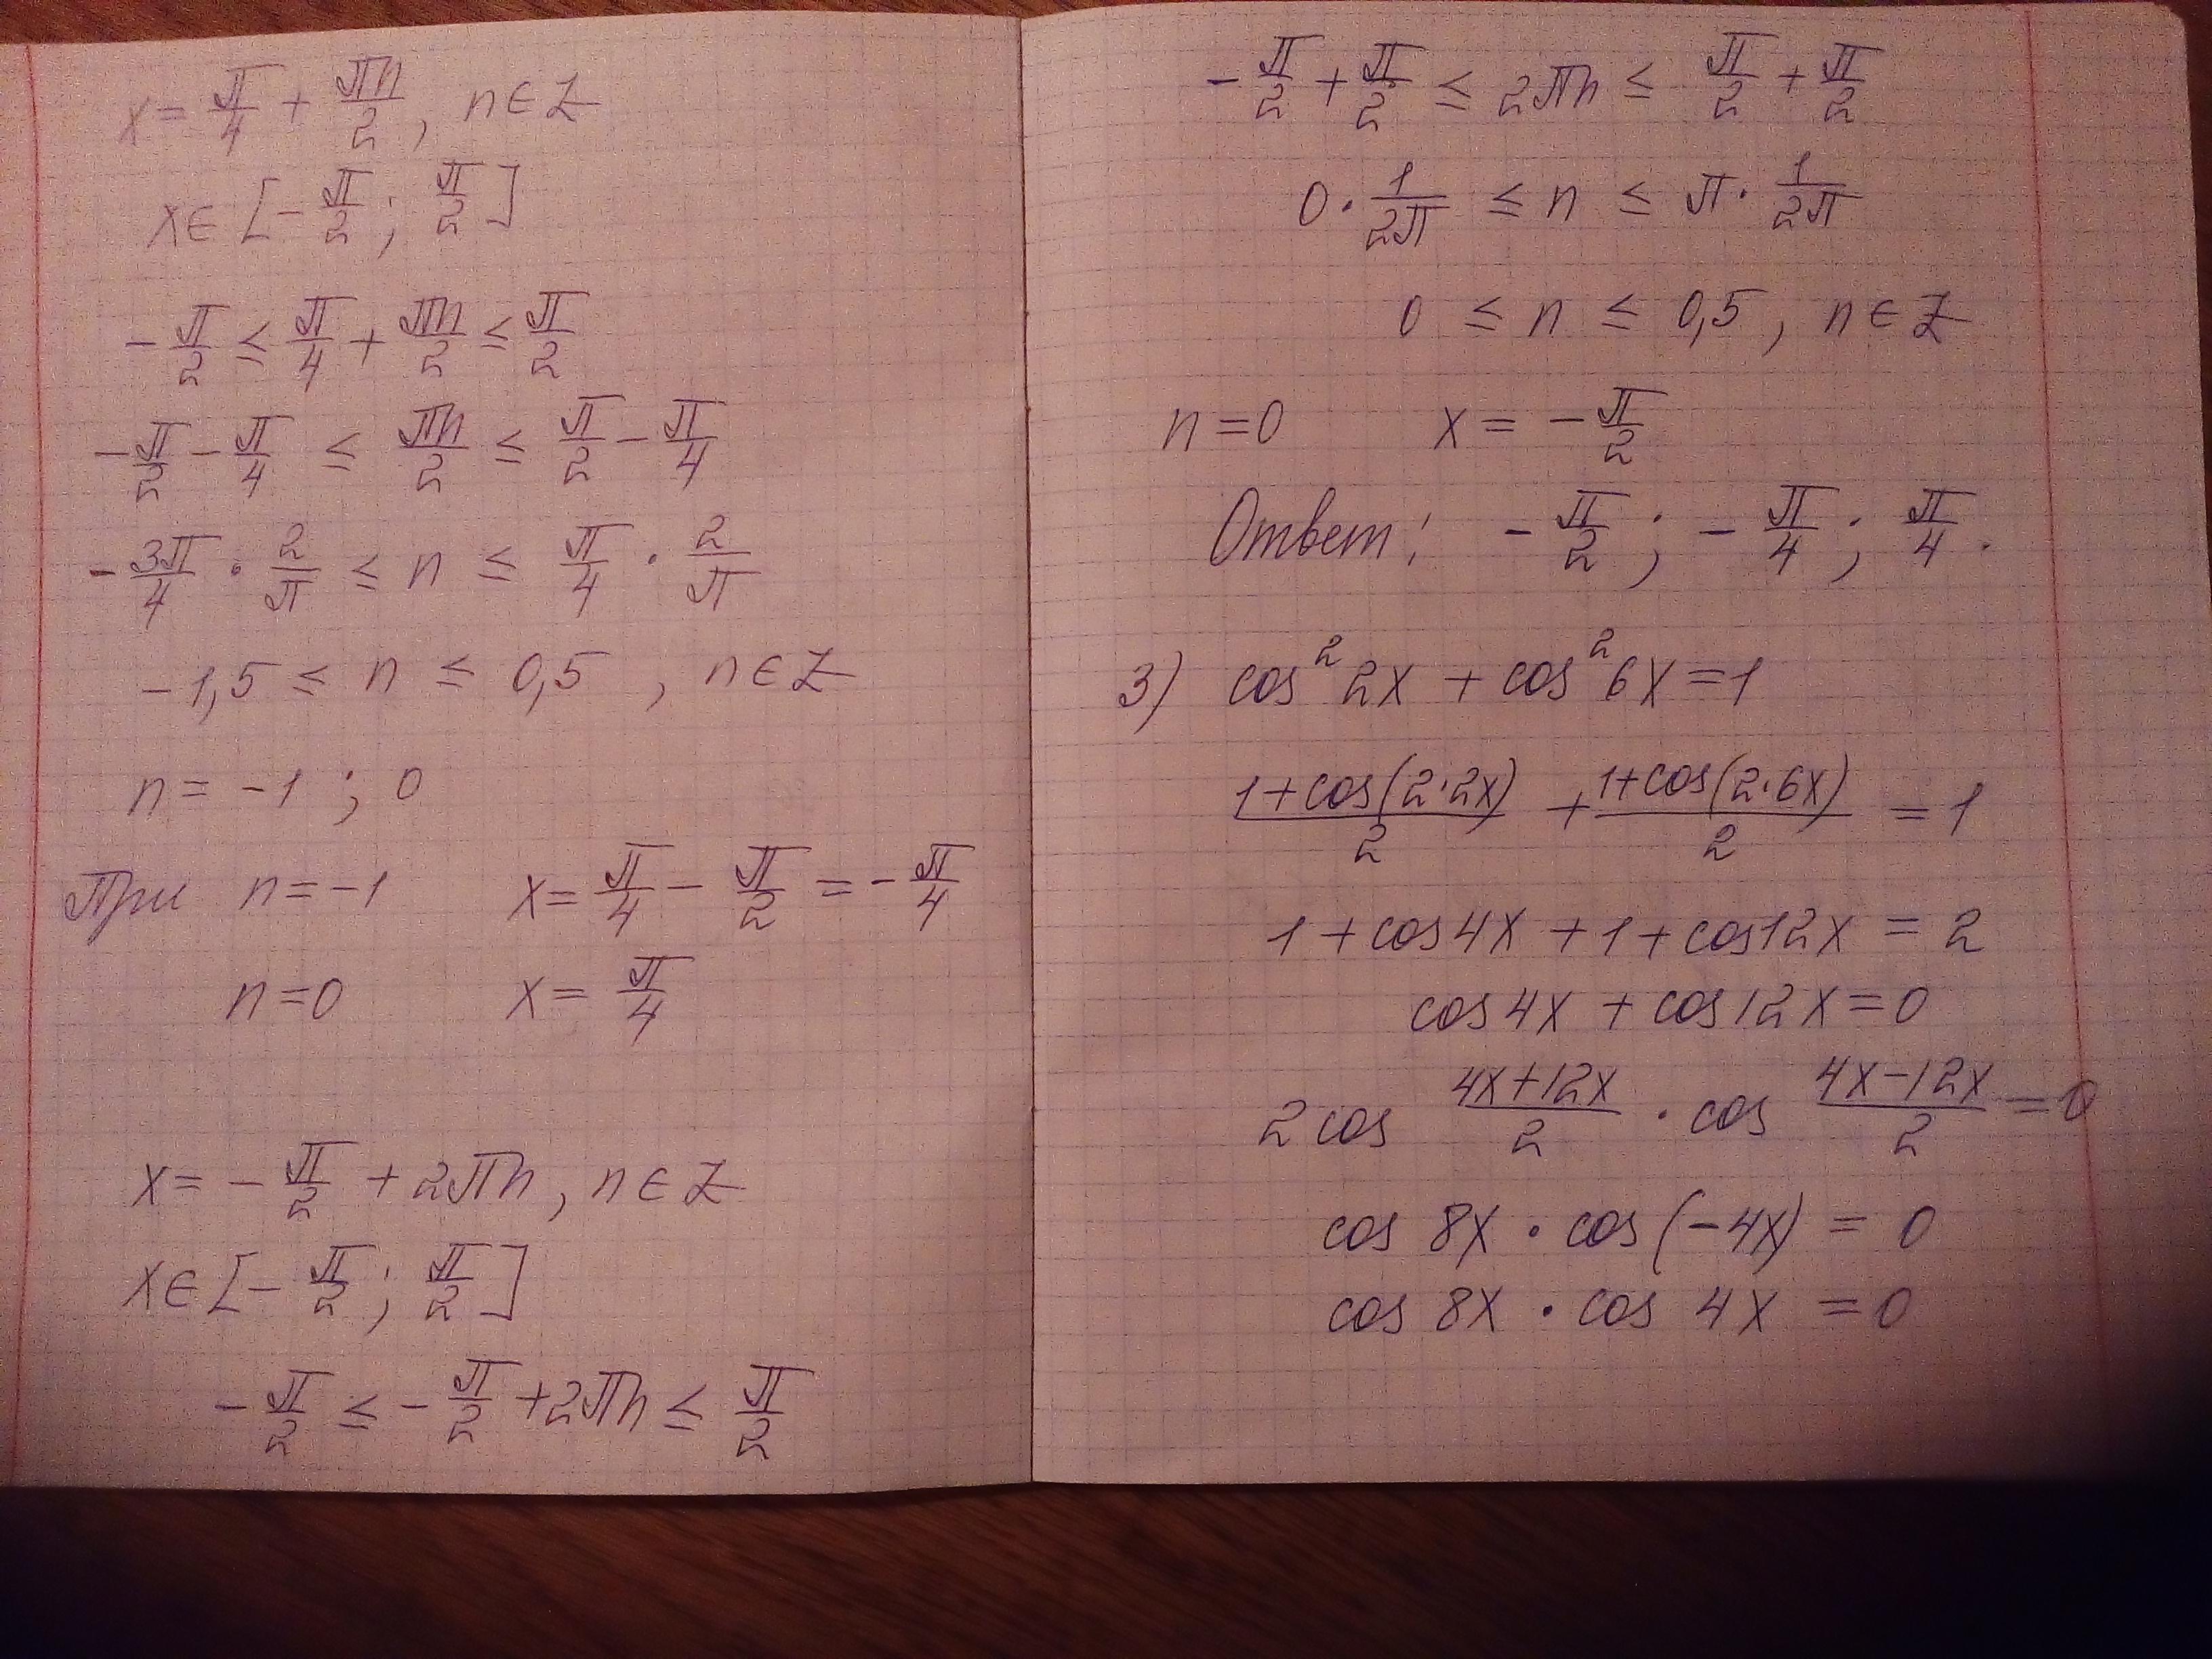 x = π/4 + πn/2, n ∈ Z
x ∈ [-π/2; π/2]
-π/2 ≤ π/4 + πn/2 ≤ π/2
-π/2 - π/4 ≤ πn/2 ≤ π/2 - π/4
-3π/4 · 2/π ≤ n ≤ π/4 · 2/π
-1,5 ≤ n ≤ 0,5, n ∈ Z
n = -1; 0
При n = -1 x = π/4 - π/2 = -π/4
n = 0 x = π/4
x = -π/2 + 2πn, n ∈ Z
x ∈ [-π/2; π/2]
-π/2 ≤ -π/2 + 2πn ≤ π/2
-π/2 + π/2 ≤ 2πn ≤ π/2 + π/2
0 · 1/2π ≤ n ≤ π · 1/2π
0 ≤ n ≤ 0,5, n ∈ Z
n = 0 x = -π/2
Ответ: -π/2; -π/4; π/4.
3) cos² 2x + cos² 6x = 1
(1 + cos(2·2x))/2 + (1 + cos(2·6x))/2 = 1
1 + cos 4x + 1 + cos 12x = 2
cos 4x + cos 12x = 0
2 cos (4x + 12x)/2 · cos (4x - 12x)/2 = 0
cos 8x · cos (-4x) = 0
cos 8x · cos 4x = 0